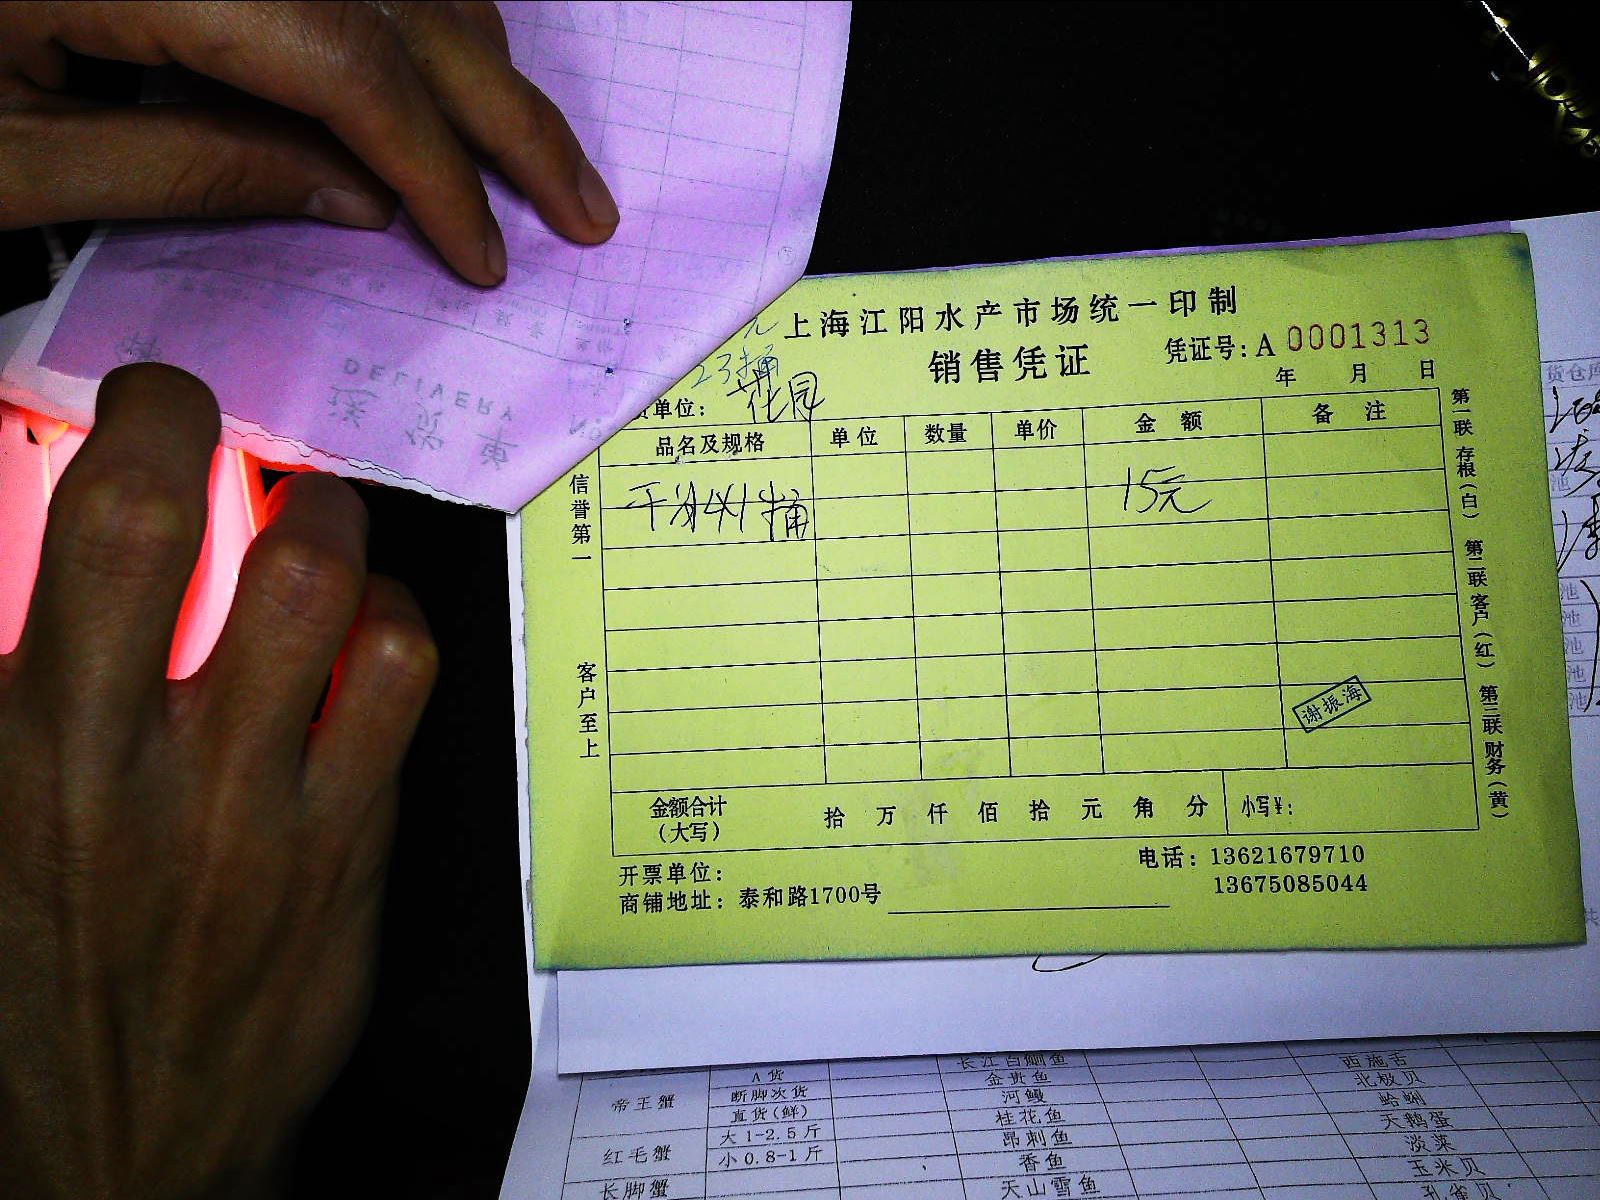 上海江阳水产市场统一印制
销售凭证
凭证号: A 0001313
年 月 日
23桶
货单位: 花园
品名及规格 单位 数量 单价 金额 备注
15元
谢振海
金额合计 (大写) 拾 万 仟 佰 拾 元 角 分 小写¥:
开票单位:
电话: 13621679710
13675085044
商铺地址: 泰和路1700号
信誉第一
客户至上
第一联 存根(白) 第二联 客户(红) 第三联 财务(黄)
DELIVERY
送货单
货仓库
池
池
池
池
池
长江白鮰鱼 西施舌
帝王蟹 A货 金贵鱼 北极贝
断脚次货 河鳗 蛤蜊
直货(鲜) 桂花鱼 天鹅蛋
红毛蟹 大1-2.5斤 昂刺鱼 淡菜
小0.8-1斤 香鱼 玉米贝
长脚蟹 天山雪鱼 孔雀贝